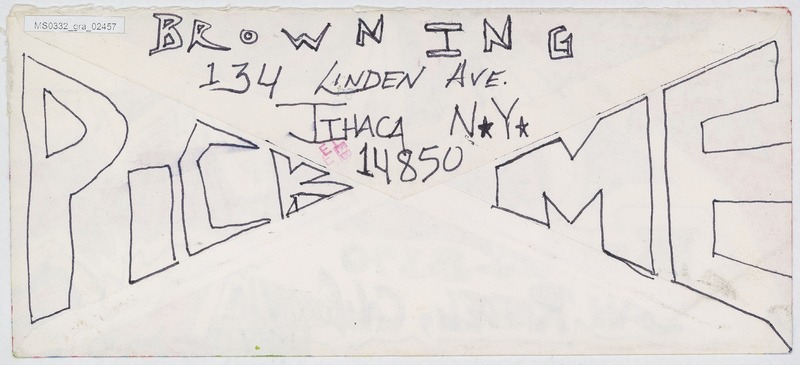 MS0332_gra_02457
BROWNING
134 LINDEN AVE.
ITHACA N.Y.
14850
PICK ME